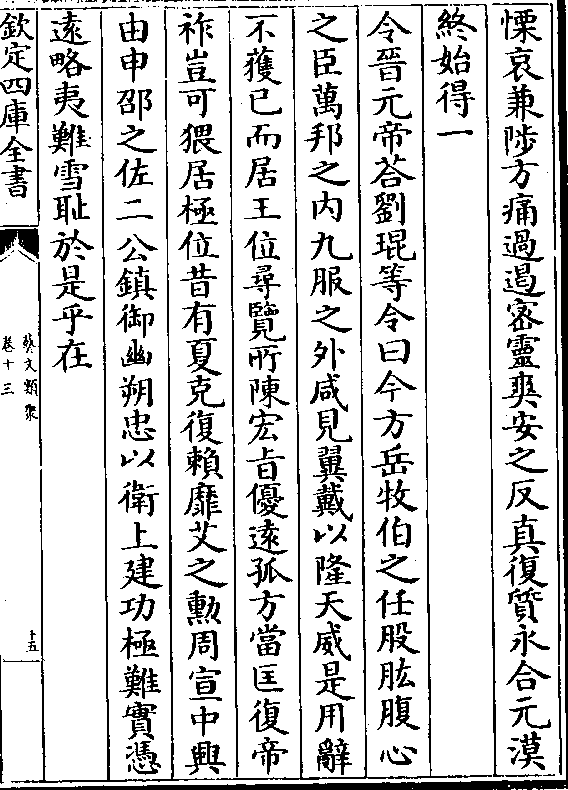 慄哀兼陟方痛過遏密靈爽安之反真復質永合元漠
終始得一
令晉元帝荅劉琨等令曰今方岳牧伯之任股肱腹心
之臣萬邦之内九服之外咸見翼戴以隆天威是用辭
不獲已而居王位尋覽所陳宏㫖優遠孤方當匡復帝
祚豈可猥居極位昔有夏克復賴靡艾之勲周宣中興
由申邵之佐二公鎮御幽朔忠以衛上建功極難實憑
遠略夷難雪耻於是乎在
欽定四庫全書
藝文類聚
卷十三
十五